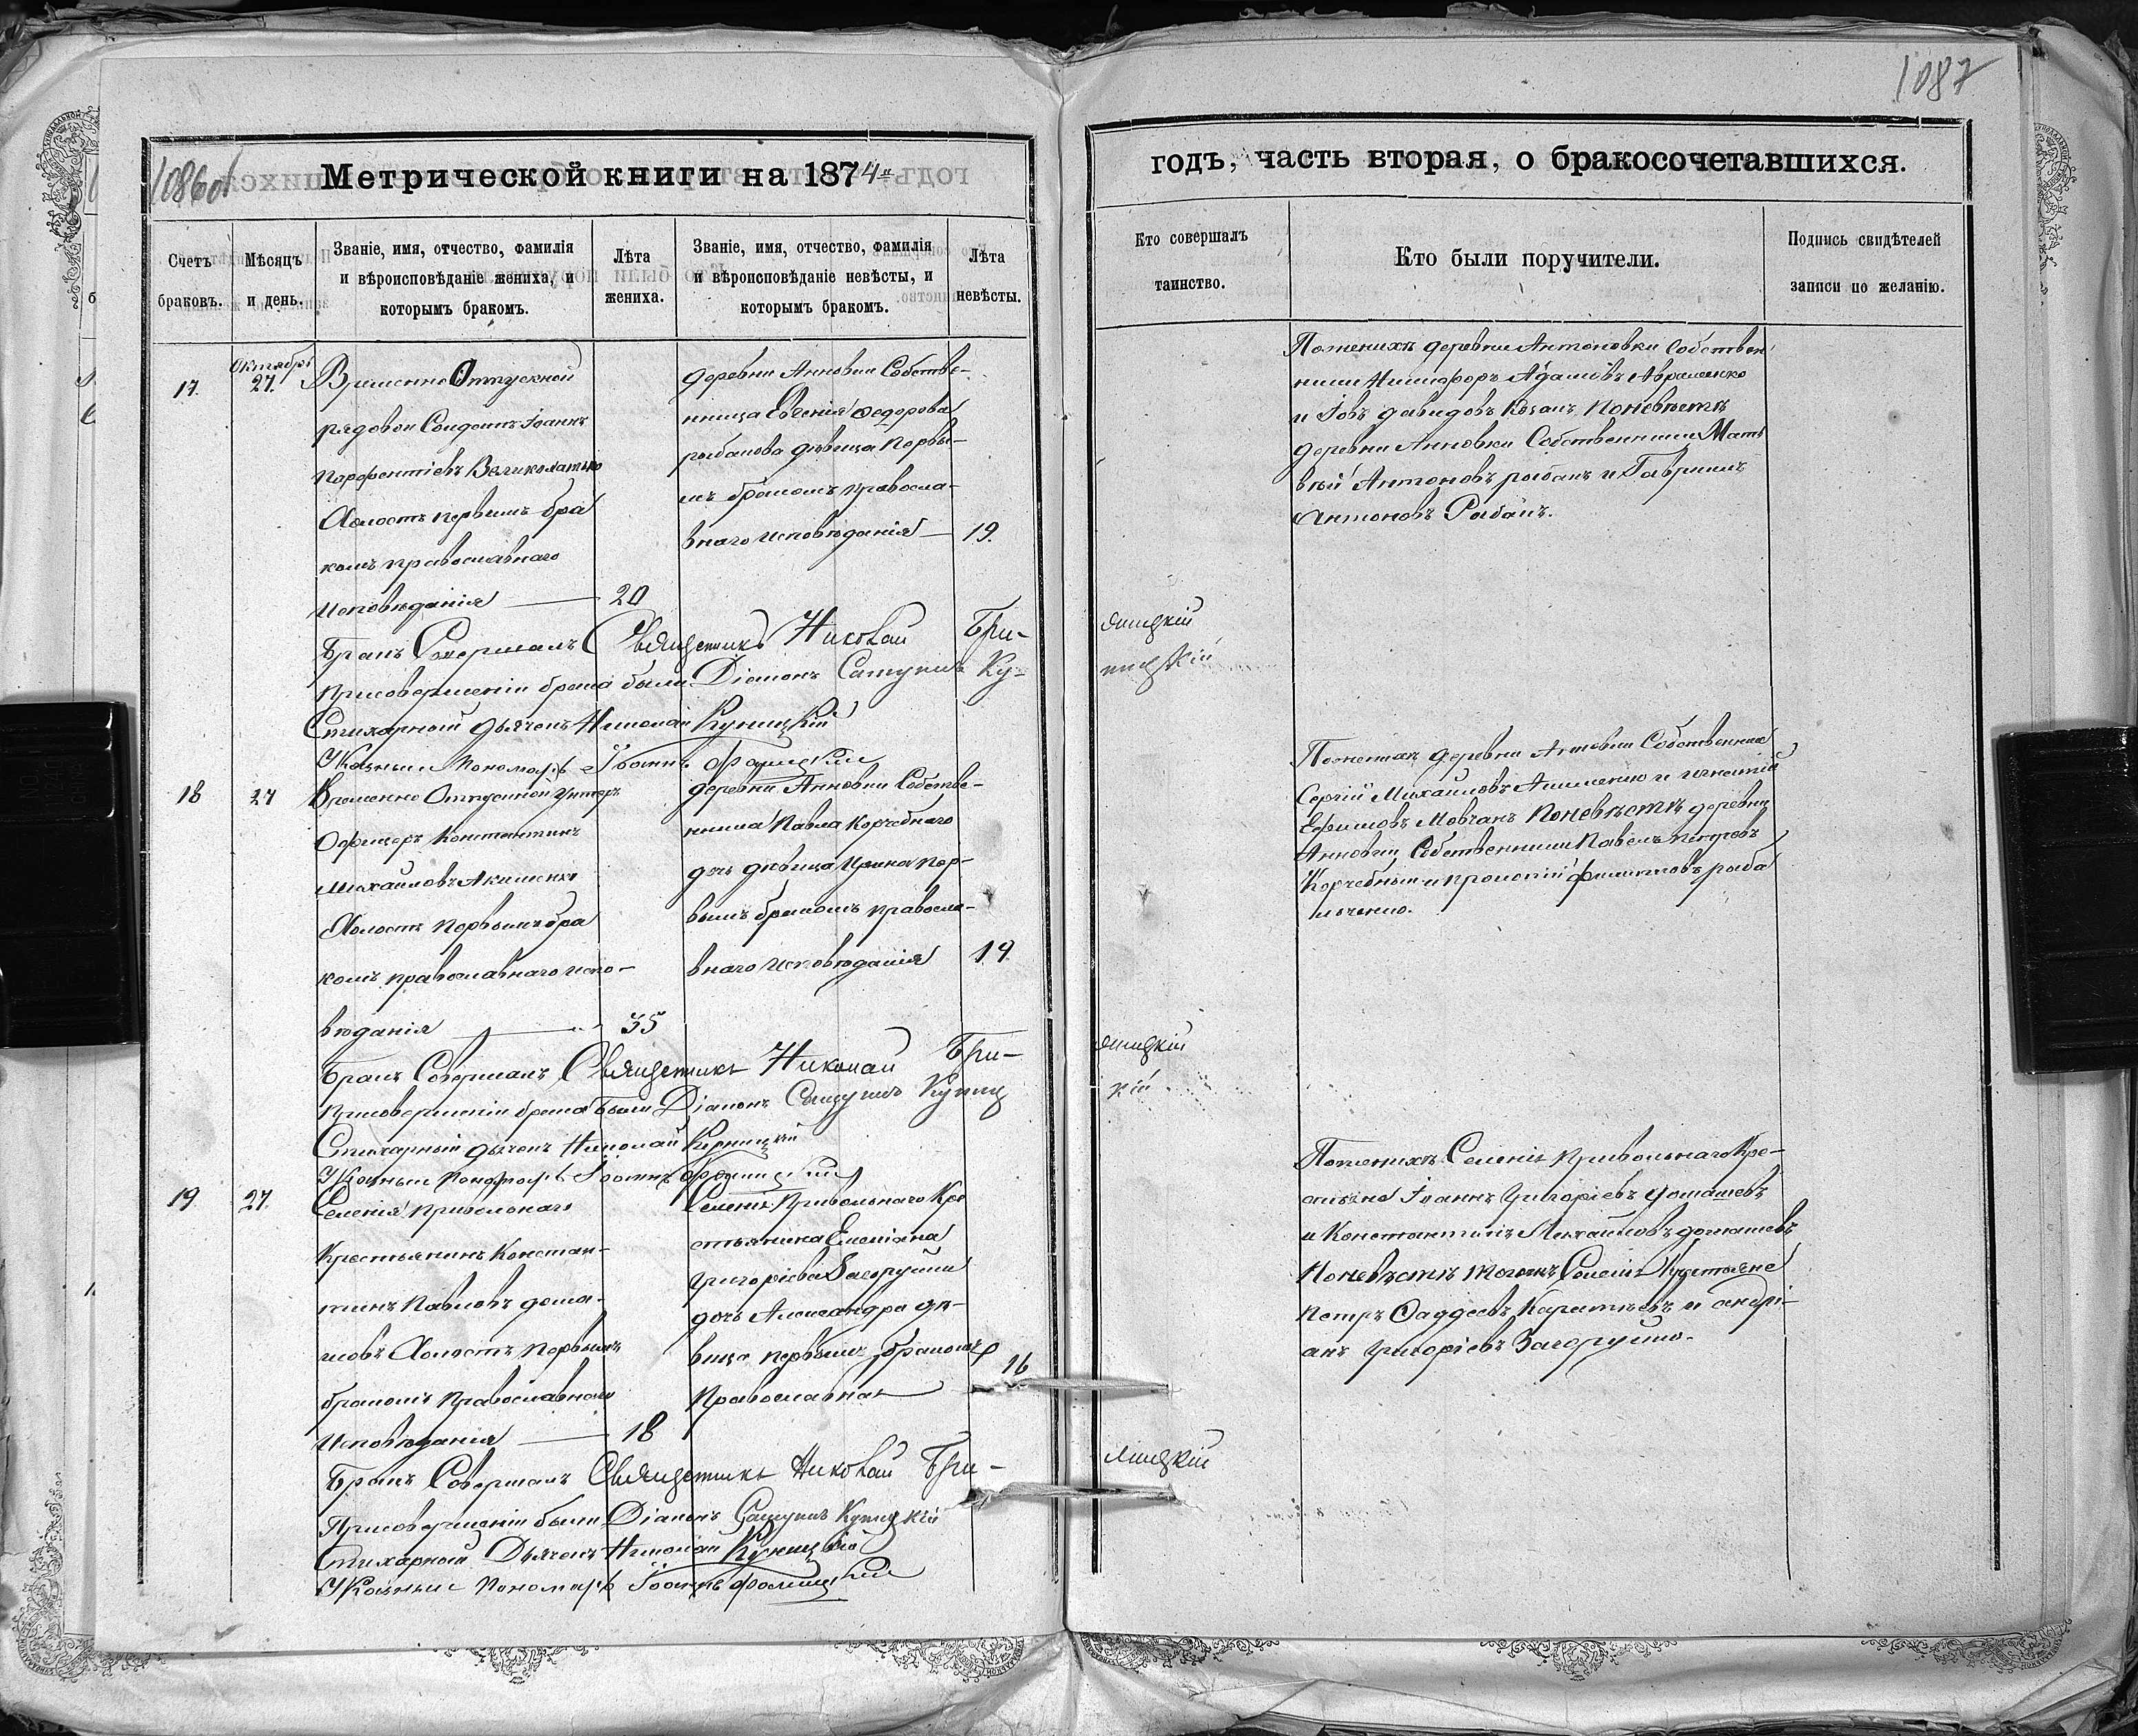 1086об
Метрической книги на 1874
Счетъ браковъ.
Мѣсяцъ и день.
Званіе, имя, отчество, фамилія
и вѣроисповѣданіе жениха, и
которымъ бракомъ.
Лѣта жениха.
Званіе, имя, отчество, фамилія
и вѣроисповѣданіе невѣсты, и
которымъ бракомъ.
Лѣта невѣсты.
17.
Октября
27.
Временно Отпускной
рядовой Іоаннъ
Парфентіевъ
Холостъ первымъ бра
комъ православнаго
Исповѣданія — 20
деревни Анновки Собстве-
нница Евгенія Федорова
рыбалова дѣвица Первы-
мъ бракомъ правосла-
внаго Исповѣданія — 19.
Бракъ Совершалъ Священникъ Николай Гри-
При совершеніи брака были Діаконъ Ку-
Стихарный дьячекъ Николай Куницкій
Указный Пономарь Іоаннъ
18
27
Временно Отпускной Унтеръ
Офицеръ Константинъ
Михайловъ Акименко
Холостъ Первымъ бра
комъ православнаго испо-
вѣданія — 35
деревни Анновки Собстве-
нника Павла Корчебного
дочь дѣвица Ирина пер-
вымъ бракомъ правосла-
внаго Исповѣданія 19
Бракъ Совершалъ Священникъ Николай Гри-
При совершеніи брака были Діаконъ Куниц
Стихарный дьячекъ Николай Куницкій
Указный Пономарь Іоаннъ
19
27.
Селенія Привольнаго
Крестьянинъ Констан-
тинъ Павловъ дома-
шовъ Холостъ Первымъ
бракомъ Православнаго
Исповѣданія — 18
Селенія Привольнаго Кре
стьянина Емельяна
Григоріева Загоруйки
дочь Александра дѣ-
вица первымъ бракомъ
Православная — 16
Бракъ Совершалъ Священникъ Николай Гри-
При совершеніи были Діаконъ Куницкій
Стихарный Дьячекъ Николай Куницкій
Указный Пономарь Іоаннъ
1087
годъ, часть вторая, о бракосочетавшихся.
Кто совершалъ
таинство.
Кто были поручители.
Подпись свидѣтелей
записи по желанію.
По женихѣ деревни Антоновки Собствен
ники Никифоръ Адамовъ Авраменко
и Іовъ давидовъ Козакъ По невѣстѣ
деревни Анновки Собственники Мат
вѣй Антоновъ рыбакъ и Гаврилъ
Антоновъ Рыбакъ.
ницкій
По женихѣ деревни Анновки Собственники
Сергій Михайловъ Акименко и Игнатій
Ефимовъ Мовчанъ По невѣстѣ деревни
Анновки Собственники Павелъ Петровъ
Корчебный и Прокопій Филиповъ рыба
льченко.
кій
По женихѣ Селенія Привольнаго Кре-
стьяне Іоаннъ Григоріевъ домашевъ
и Константинъ Михайловъ домашевъ
По невѣстѣ того жъ Селенія Крестьяне
Петръ Фаддеевъ и Андрі-
анъ Григоріевъ Загоруйко.